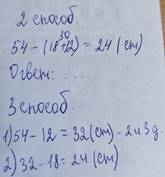 2 способ
30
54-(18+12)=24(см)
Ответ: . . . .
3 способ.
1) 54-12=32(см)-2и3д.
2) 32-18=24(см)